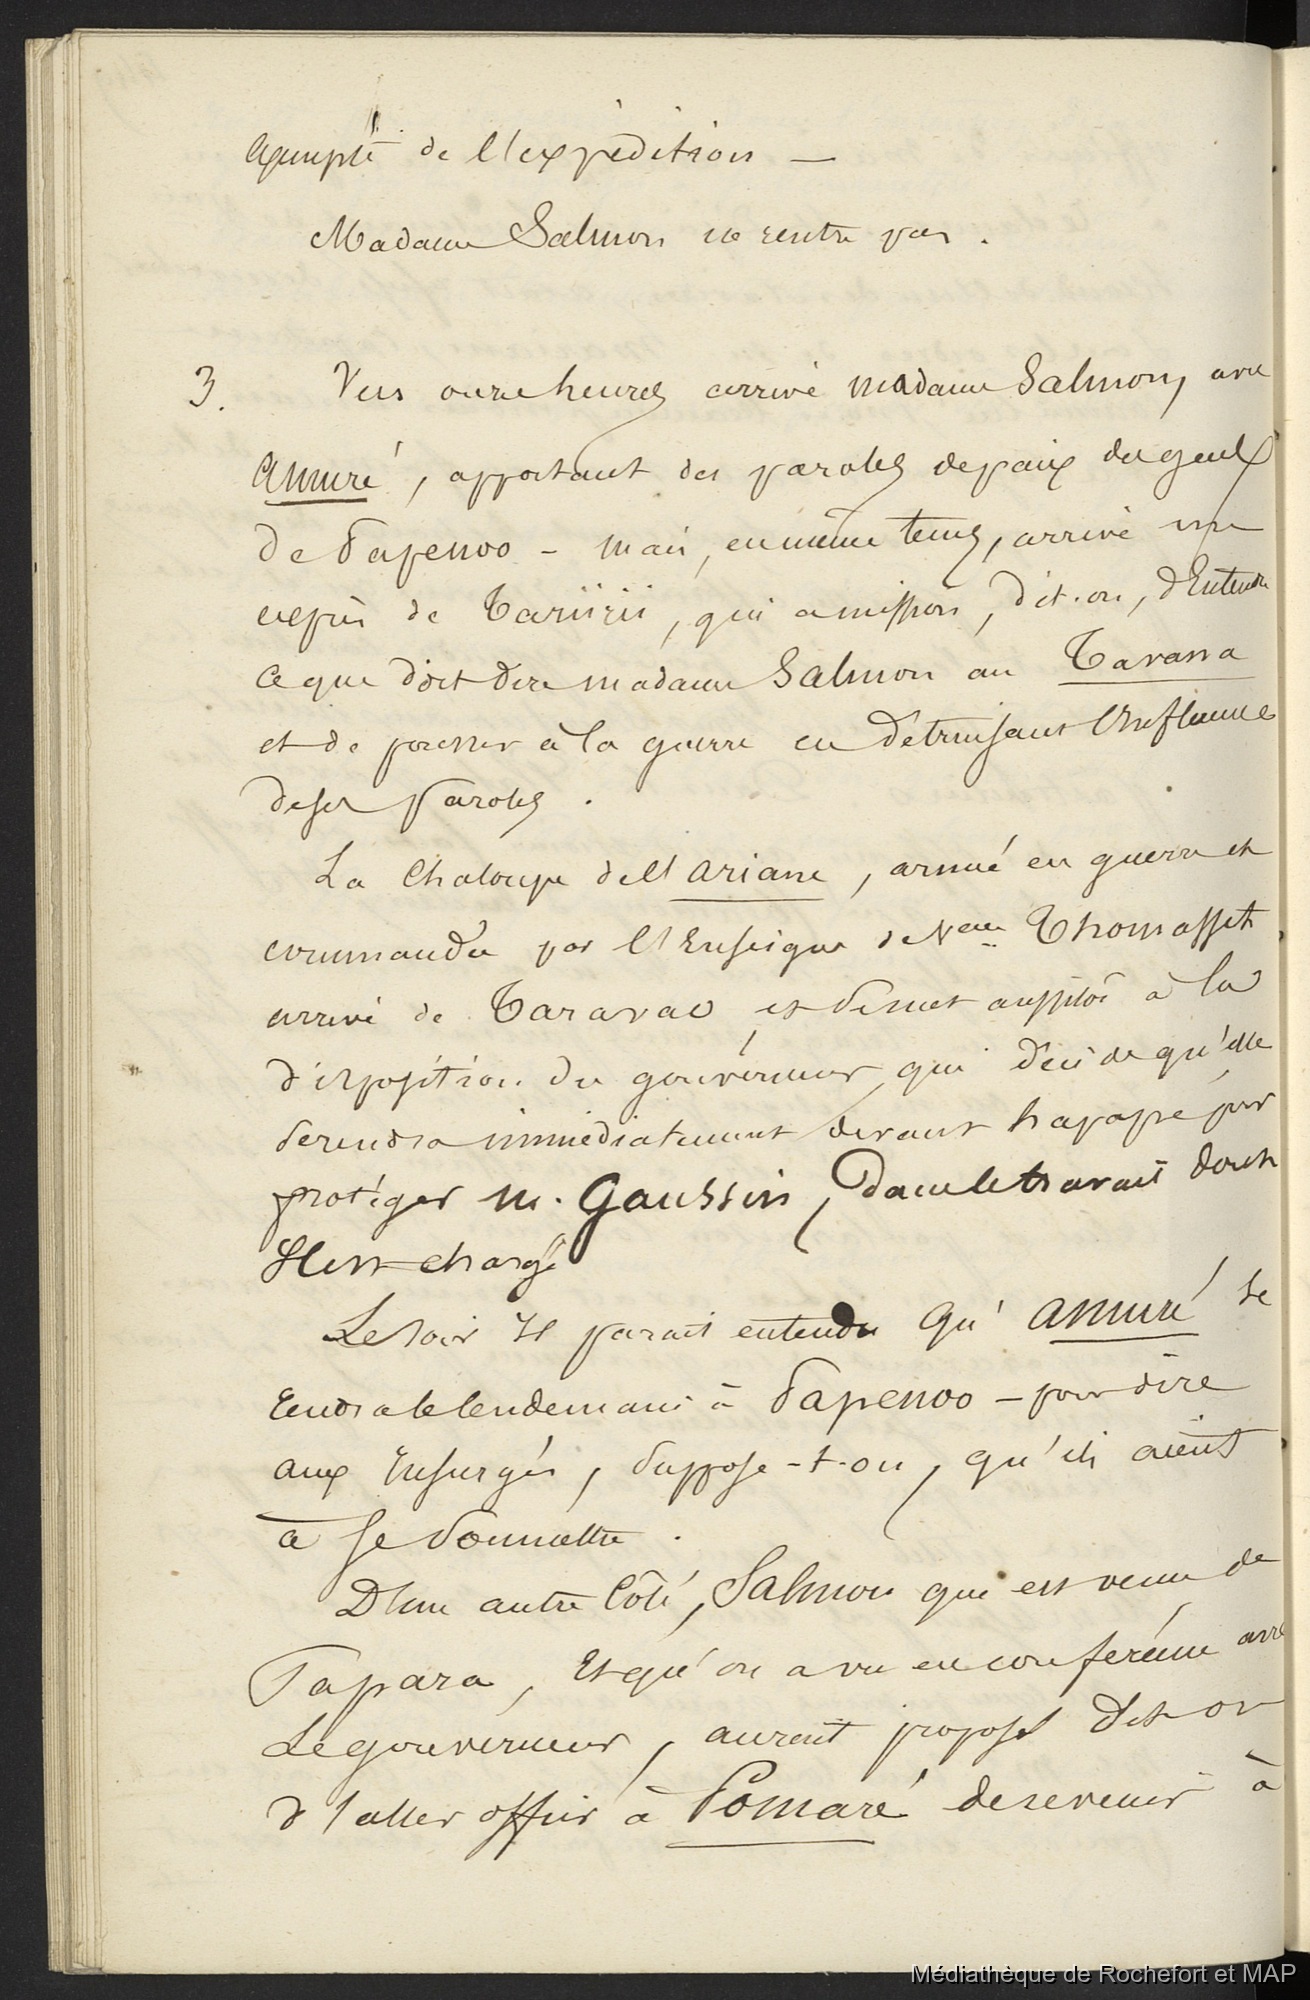 exempté de l'expédition —
Madame Salmon ne rentre pas.
3. Vers onze heures arrive madame Salmon, avec
Anuré, apportant des paroles de paix des gens
de Papenoo - mais, en même tems, arrive un
espion de Tariirii, qui a mission, dit-on, d'Entendre
ce que doit dire madame Salmon au Tavana
et de pousser à la guerre en détruisant l'Influence
de ses paroles.
La Chaloupe de l'Ariane, armée en guerre et
commandée par l'Enseigne de Veau Thomasset
arrive de Taravao et se met aussitôt à la
disposition du gouverneur, qui décide qu'elle
se rendra immédiatement devant hapape pour
protéger M. Gaussin, dans le travail dont
Il est chargé
Le soir Il parait entendu qu'Anuré se
rendra le lendemain à Papenoo - pour dire
aux Insurgés, suppose-t-on, qu'ils aient
à se soumettre.
D'un autre Côté, Salmon qui est venu de
Papara, Et qu'on a vu en conférence avec
Le gouverneur, aurait proposé dit-on
d'aller offrir à Pomaré de revenir à
Médiathèque de Rochefort et MAP